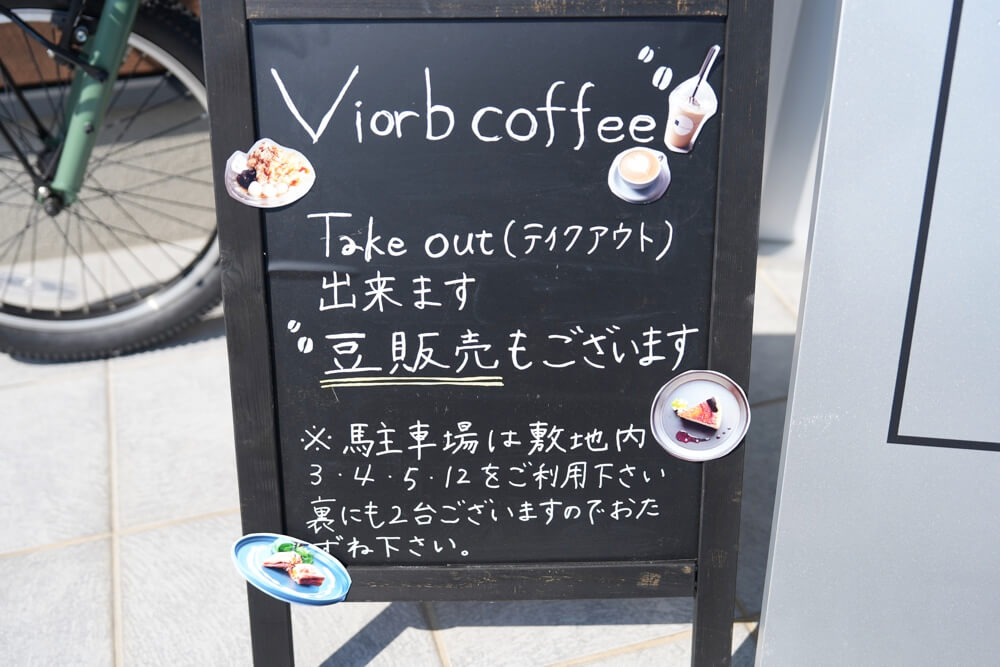 Viorb coffee
Take out(テイクアウト)
出来ます
豆販売もございます
※馬主車場は敷地内
3・4・5・12をご利用下さい
裏にも2台ございますのでおた
ずね下さい。